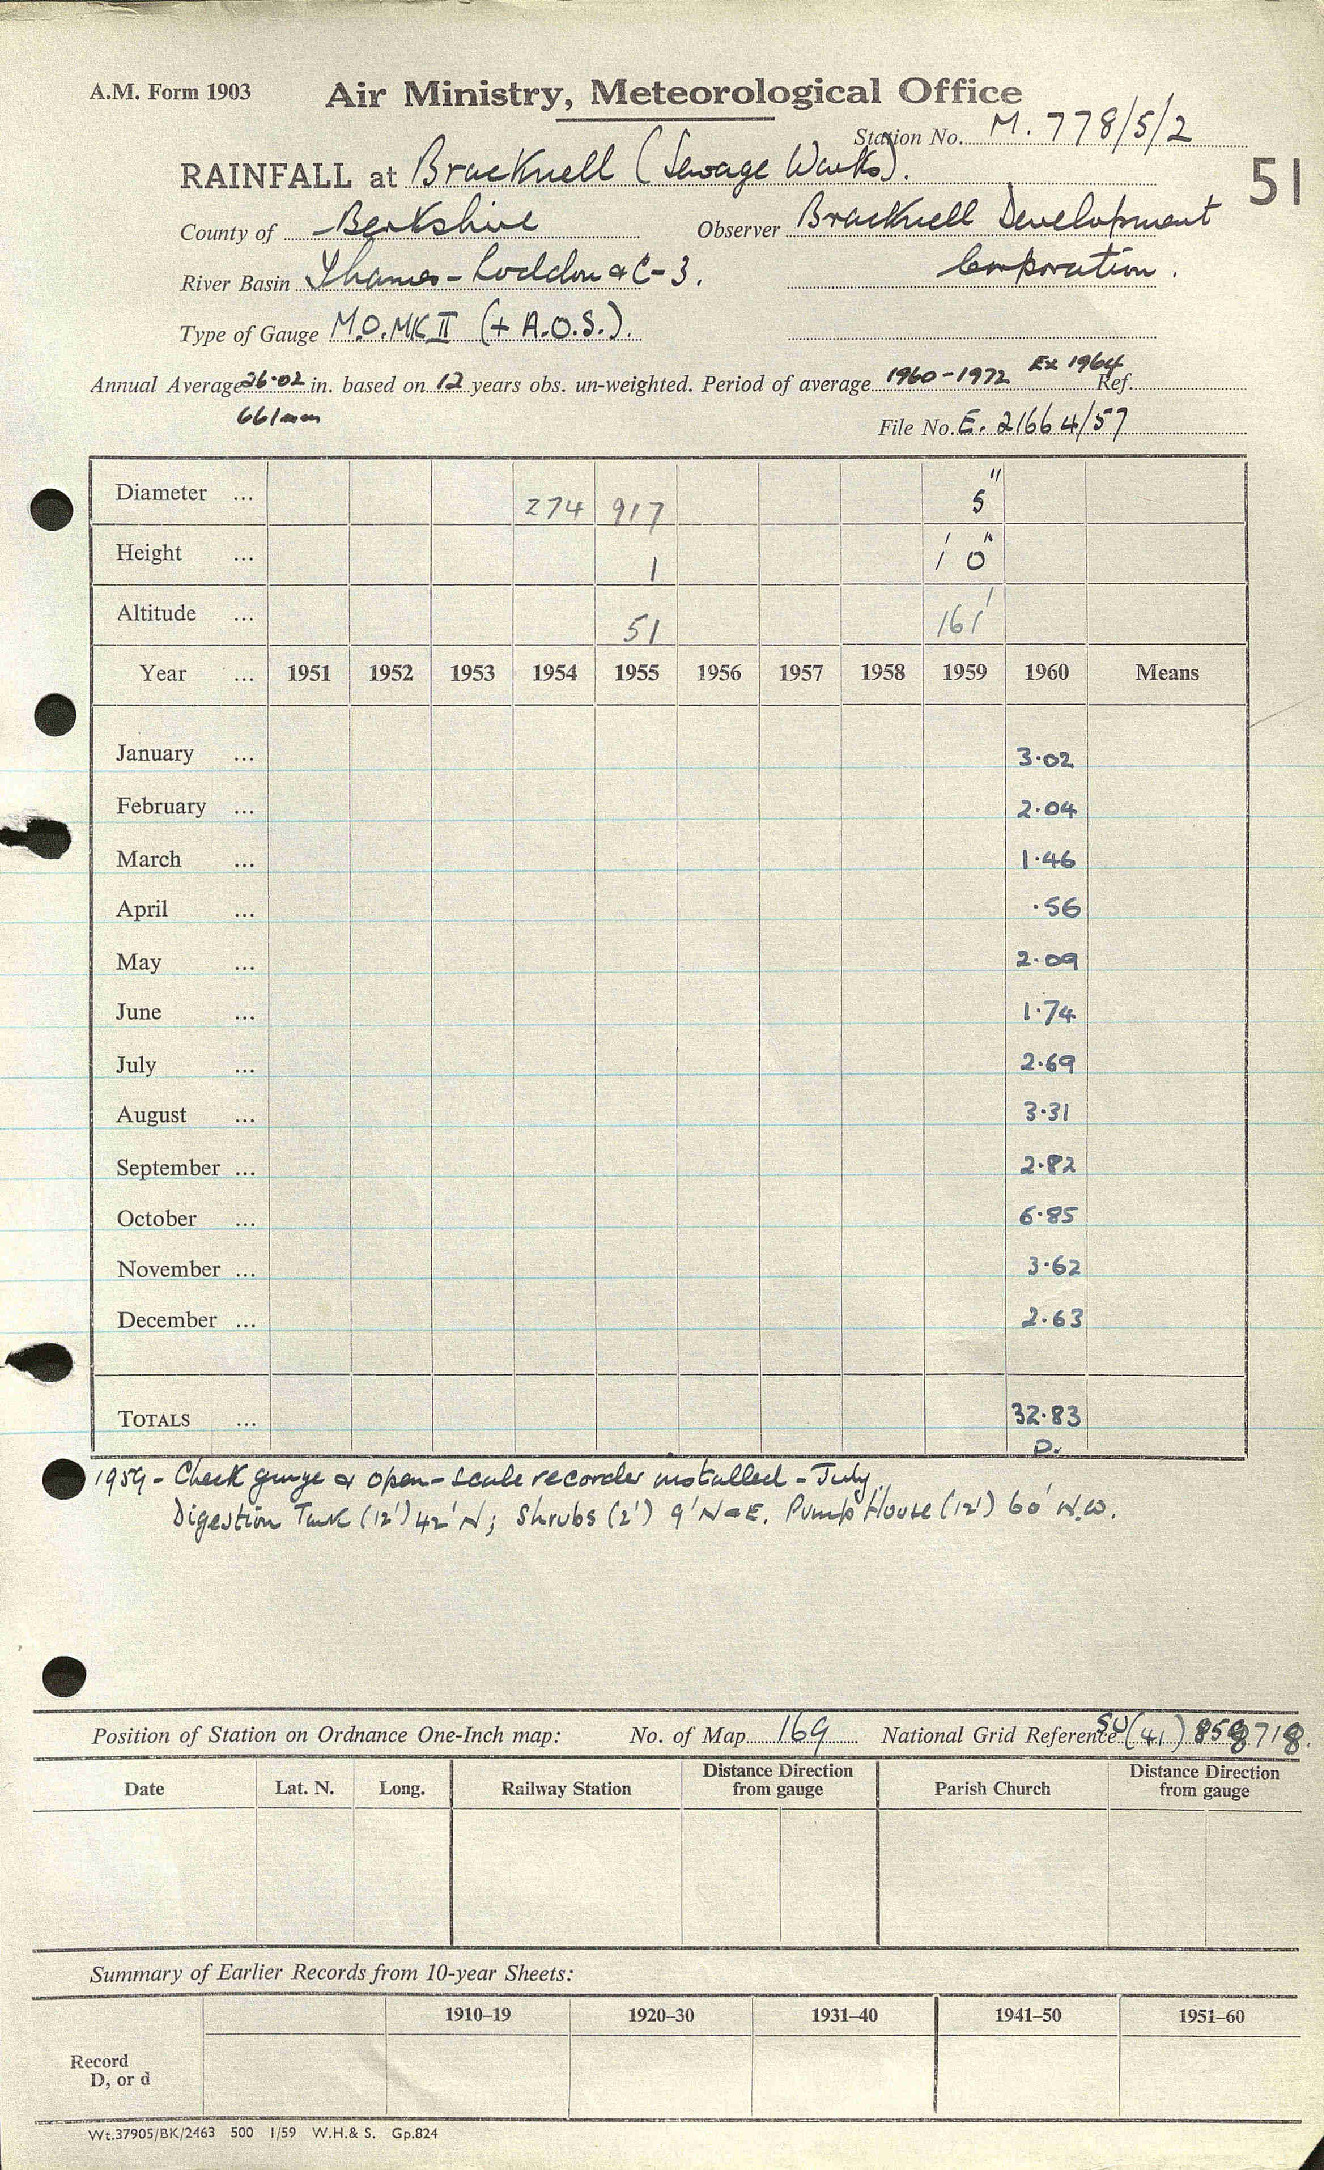 A.M. Form 1903 Air Ministry, Meteorological Office
Station No. M. 778/5/2
RAINFALL at Bracknell (Sewage Works). 51
County of Berkshire Observer Bracknell Development
River Basin Thames - Loddon & C-3. Corporation.
Type of Gauge M.O. MK II (+ A.O.S.).
Annual Average 26.02 in. based on 12 years obs. un-weighted. Period of average 1960-1972 Ex 1964 Ref.
661mm File No. E. 21664/57
Diameter ... 274 917 5"
Height ... 1 1' 0"
Altitude ... 51 161'
Year ... 1951 1952 1953 1954 1955 1956 1957 1958 1959 1960 Means
January ... 3.02
February ... 2.04
March ... 1.46
April ... .56
May ... 2.09
June ... 1.74
July ... 2.69
August ... 3.31
September ... 2.82
October ... 6.85
November ... 3.62
December ... 2.63
TOTALS ... 32.83
D.
1959 - Check gauge & open-scale recorder installed - July.
Digestion Tank (12') 42' N; Shrubs (2') 9' N & E. Pump House (12') 60' N.W.
Position of Station on Ordnance One-Inch map: No. of Map 169 National Grid Reference SU (41) 858 718.
Date Lat. N. Long. Railway Station Distance Direction from gauge Parish Church Distance Direction from gauge
Summary of Earlier Records from 10-year Sheets:
1910–19 1920–30 1931–40 1941–50 1951–60
Record
D, or d
Wt.37905/BK/2463 500 1/59 W.H.& S. Gp.824